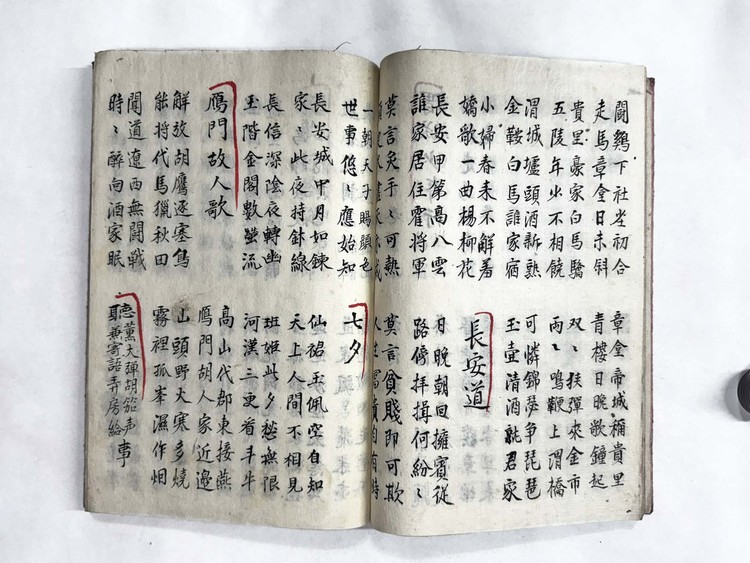 鬪鷄下社坐初合
走馬章臺日未斜
章臺帝城稱貴里
青樓日晚歌鐘起
貴里豪家白馬驕
五陵年少不相饒
双〻挟彈來金市
兩〻鳴鞭上渭橋
渭城壚頭酒新熟
金鞍白馬誰家宿
可憐錦瑟争琵琶
玉壺清酒就君家
小婦春来不解羞
嬌歌一曲楊柳花
長安道
長安甲第高入雲
誰家居住霍將軍
日晚朝回擁賓從
路傍拜揖何紛〻
莫言炙手〻可熱
須臾火盡灰亦滅
莫言貧賤即可欺
人生富貴自有時
一朝天子賜顏色
世事悠〻應始知
七夕
長安城中月如鍊
家〻此夜持鉢線
仙裙玉佩空自知
天上人間不相見
長信深陰夜轉幽
玉階金閣數螢流
班姬此夕愁無限
河漢三更看斗牛
鴈門故人歌
高山代郡東接燕
鴈門胡人家近邊
解放胡鷹逐塞鳥
能将代馬獵秋田
山頭野火寒多燒
霧裡孤峯濕作烟
聞道遼西無闘戰
時〻醉向酒家眠
聽薫大彈胡笳声
兼寄語弄房給事